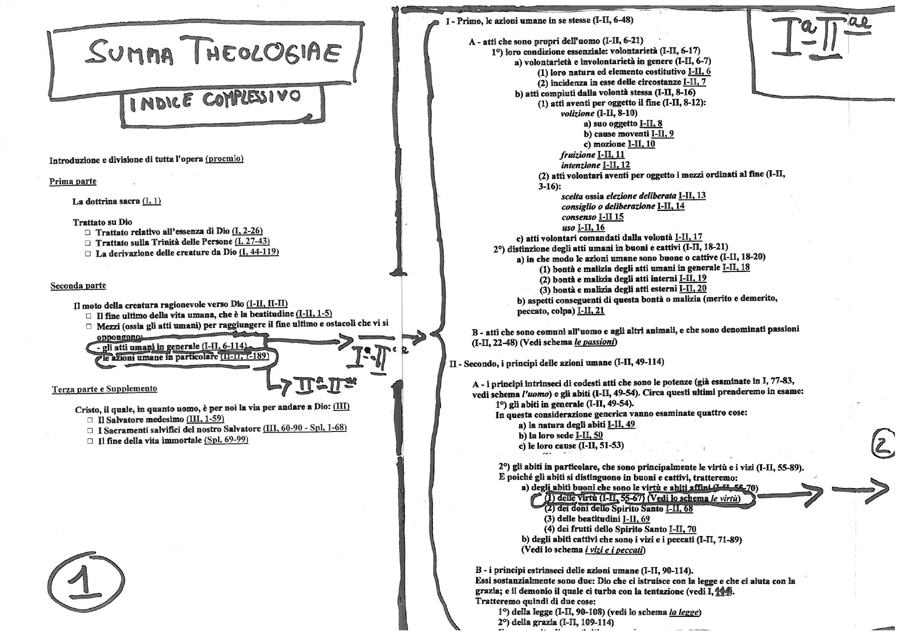 SUMMA THEOLOGIAE
INDICE COMPLESSIVO
Introduzione e divisione di tutta l'opera (proemio)
Prima parte
La dottrina sacra (I, 1)
Trattato su Dio
☐ Trattato relativo all'essenza di Dio (I, 2-26)
☐ Trattato sulla Trinità delle Persone (I, 27-43)
☐ La derivazione delle creature da Dio (I, 44-119)
Seconda parte
Il moto della creatura ragionevole verso Dio (I-II, II-II)
☐ Il fine ultimo della vita umana, che è la beatitudine (I-II, 1-5)
☐ Mezzi (ossia gli atti umani) per raggiungere il fine ultimo e ostacoli che vi si
oppongono:
- gli atti umani in generale (I-II, 6-114)
- le azioni umane in particolare (II-II, 1-189)
Iª IIªᵉ
IIª IIªᵉ
Terza parte e Supplemento
Cristo, il quale, in quanto uomo, è per noi la via per andare a Dio: (III)
☐ Il Salvatore medesimo (III, 1-59)
☐ I Sacramenti salvifici del nostro Salvatore (III, 60-90 - Spl, 1-68)
☐ Il fine della vita immortale (Spl, 69-99)
1
Iª IIªᵉ
I - Primo, le azioni umane in se stesse (I-II, 6-48)
A - atti che sono propri dell'uomo (I-II, 6-21)
1°) loro condizione essenziale: volontarietà (I-II, 6-17)
a) volontarietà e involontarietà in genere (I-II, 6-7)
(1) loro natura ed elemento costitutivo I-II, 6
(2) incidenza in esse delle circostanze I-II, 7
b) atti compiuti dalla volontà stessa (I-II, 8-16)
(1) atti aventi per oggetto il fine (I-II, 8-12):
volizione (I-II, 8-10)
a) suo oggetto I-II, 8
b) cause moventi I-II, 9
c) mozione I-II, 10
fruizione I-II, 11
intenzione I-II, 12
(2) atti volontari aventi per oggetto i mezzi ordinati al fine (I-II,
3-16):
scelta ossia elezione deliberata I-II, 13
consiglio o deliberazione I-II, 14
consenso I-II 15
uso I-II, 16
c) atti volontari comandati dalla volontà I-II, 17
2°) distinzione degli atti umani in buoni e cattivi (I-II, 18-21)
a) in che modo le azioni umane sono buone o cattive (I-II, 18-20)
(1) bontà e malizia degli atti umani in generale I-II, 18
(2) bontà e malizia degli atti interni I-II, 19
(3) bontà e malizia degli atti esterni I-II, 20
b) aspetti conseguenti di questa bontà o malizia (merito e demerito,
peccato, colpa) I-II, 21
B - atti che sono comuni all'uomo e agli altri animali, e che sono denominati passioni
(I-II, 22-48) (Vedi schema le passioni)
II - Secondo, i principi delle azioni umane (I-II, 49-114)
A - i principi intrinseci di codesti atti che sono le potenze (già esaminate in I, 77-83,
vedi schema l'uomo) e gli abiti (I-II, 49-54). Circa questi ultimi prenderemo in esame:
1°) gli abiti in generale (I-II, 49-54).
In questa considerazione generica vanno esaminate quattro cose:
a) la natura degli abiti I-II, 49
b) la loro sede I-II, 50
c) le loro cause (I-II, 51-53)
2°) gli abiti in particolare, che sono principalmente le virtù e i vizi (I-II, 55-89).
E poiché gli abiti si distinguono in buoni e cattivi, tratteremo:
a) degli abiti buoni che sono le virtù e abiti affini (I-II, 55-70)
(1) delle virtù (I-II, 55-67) (Vedi lo schema le virtù)
(2) dei doni dello Spirito Santo I-II, 68
(3) delle beatitudini I-II, 69
(4) dei frutti dello Spirito Santo I-II, 70
b) degli abiti cattivi che sono i vizi e i peccati (I-II, 71-89)
(Vedi lo schema i vizi e i peccati)
2
B - i principi estrinseci delle azioni umane (I-II, 90-114).
Essi sostanzialmente sono due: Dio che ci istruisce con la legge e che ci aiuta con la
grazia; e il demonio il quale ci turba con la tentazione (vedi I,
Tratteremo quindi di due cose:
1°) della legge (I-II, 90-108) (vedi lo schema la legge)
2°) della grazia (I-II, 109-114)